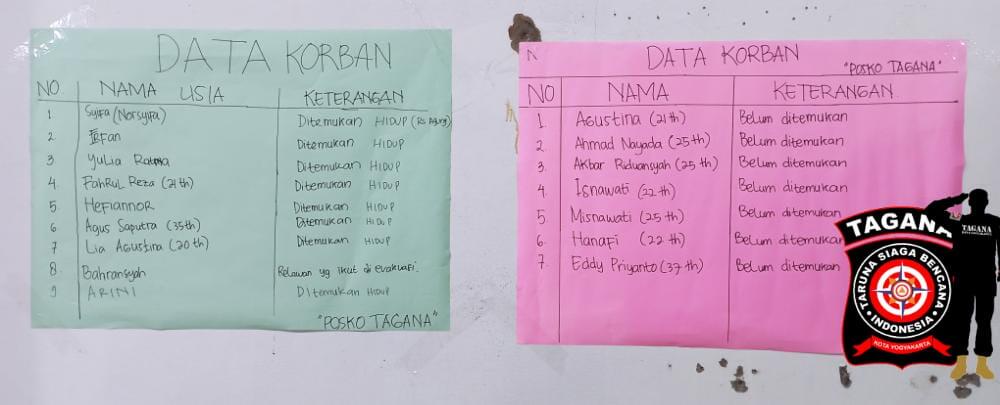 DATA KORBAN
NO NAMA USIA KETERANGAN
1 Syifa (Norsyifa) Ditemukan HIDUP (Rs Agung)
2 Irfan Ditemukan HIDUP
3. Yulia Ratna Ditemukan HIDUP
4. FAHRUL REZA (21 th) Ditemukan HIDUP
5. Hefiannor Ditemukan HIDUP
6 Agus Saputra (35 th) Ditemukan HIDUP
7 Lia Agustina (20 th) Ditemukan HIDUP
8. Bahransyah Relawan yg ikut di evakuasi.
9 ARINI Ditemukan HIDUP
"POSKO TAGANA"
N DATA KORBAN
"POSKO TAGANA"
NO NAMA KETERANGAN
1. Agustina (21 th) Belum ditemukan
2. Ahmad Nayada (25 th) Belum ditemukan
3. Akbar Riduansyah (25 th) Belum ditemukan
4. Isnawati (22 th) Belum ditemukan
5. Misnawati (25 th) Belum ditemukan
6. Hanafi (22 th) Belum ditemukan
7. Eddy Priyanto (37 th) Belum ditemukan
TAGANA
TARUNA SIAGA BENCANA
INDONESIA
KOTA YOGYAKARTA
TAGANA